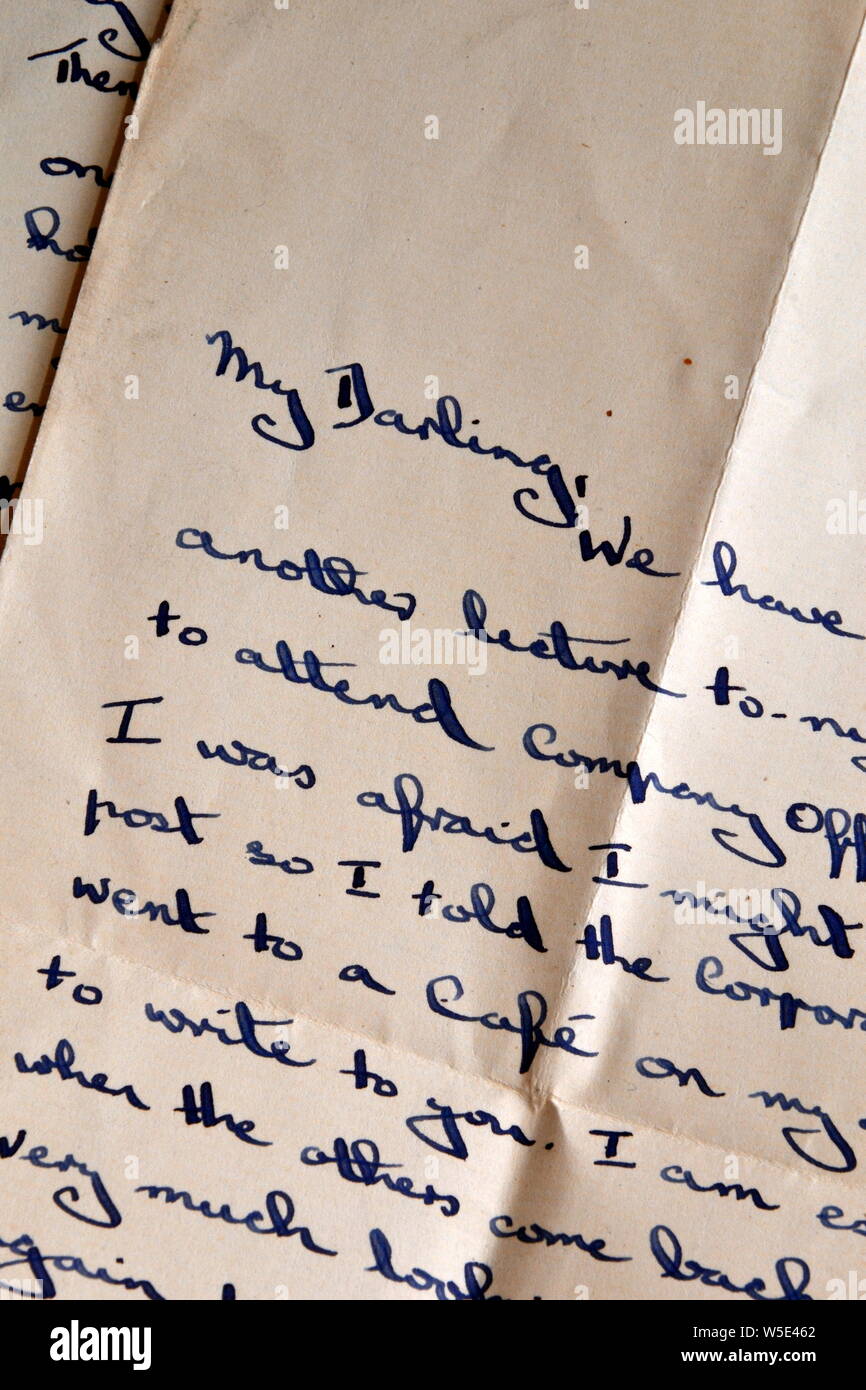 Then
on
My Darling,
We have
another lecture to-
to attend Company
I was afraid I might
post so I told the
went to a Café on my
to write to you. I am
when the others come back
very much
again
alamy
alamy
Image ID: W5E462
www.alamy.com